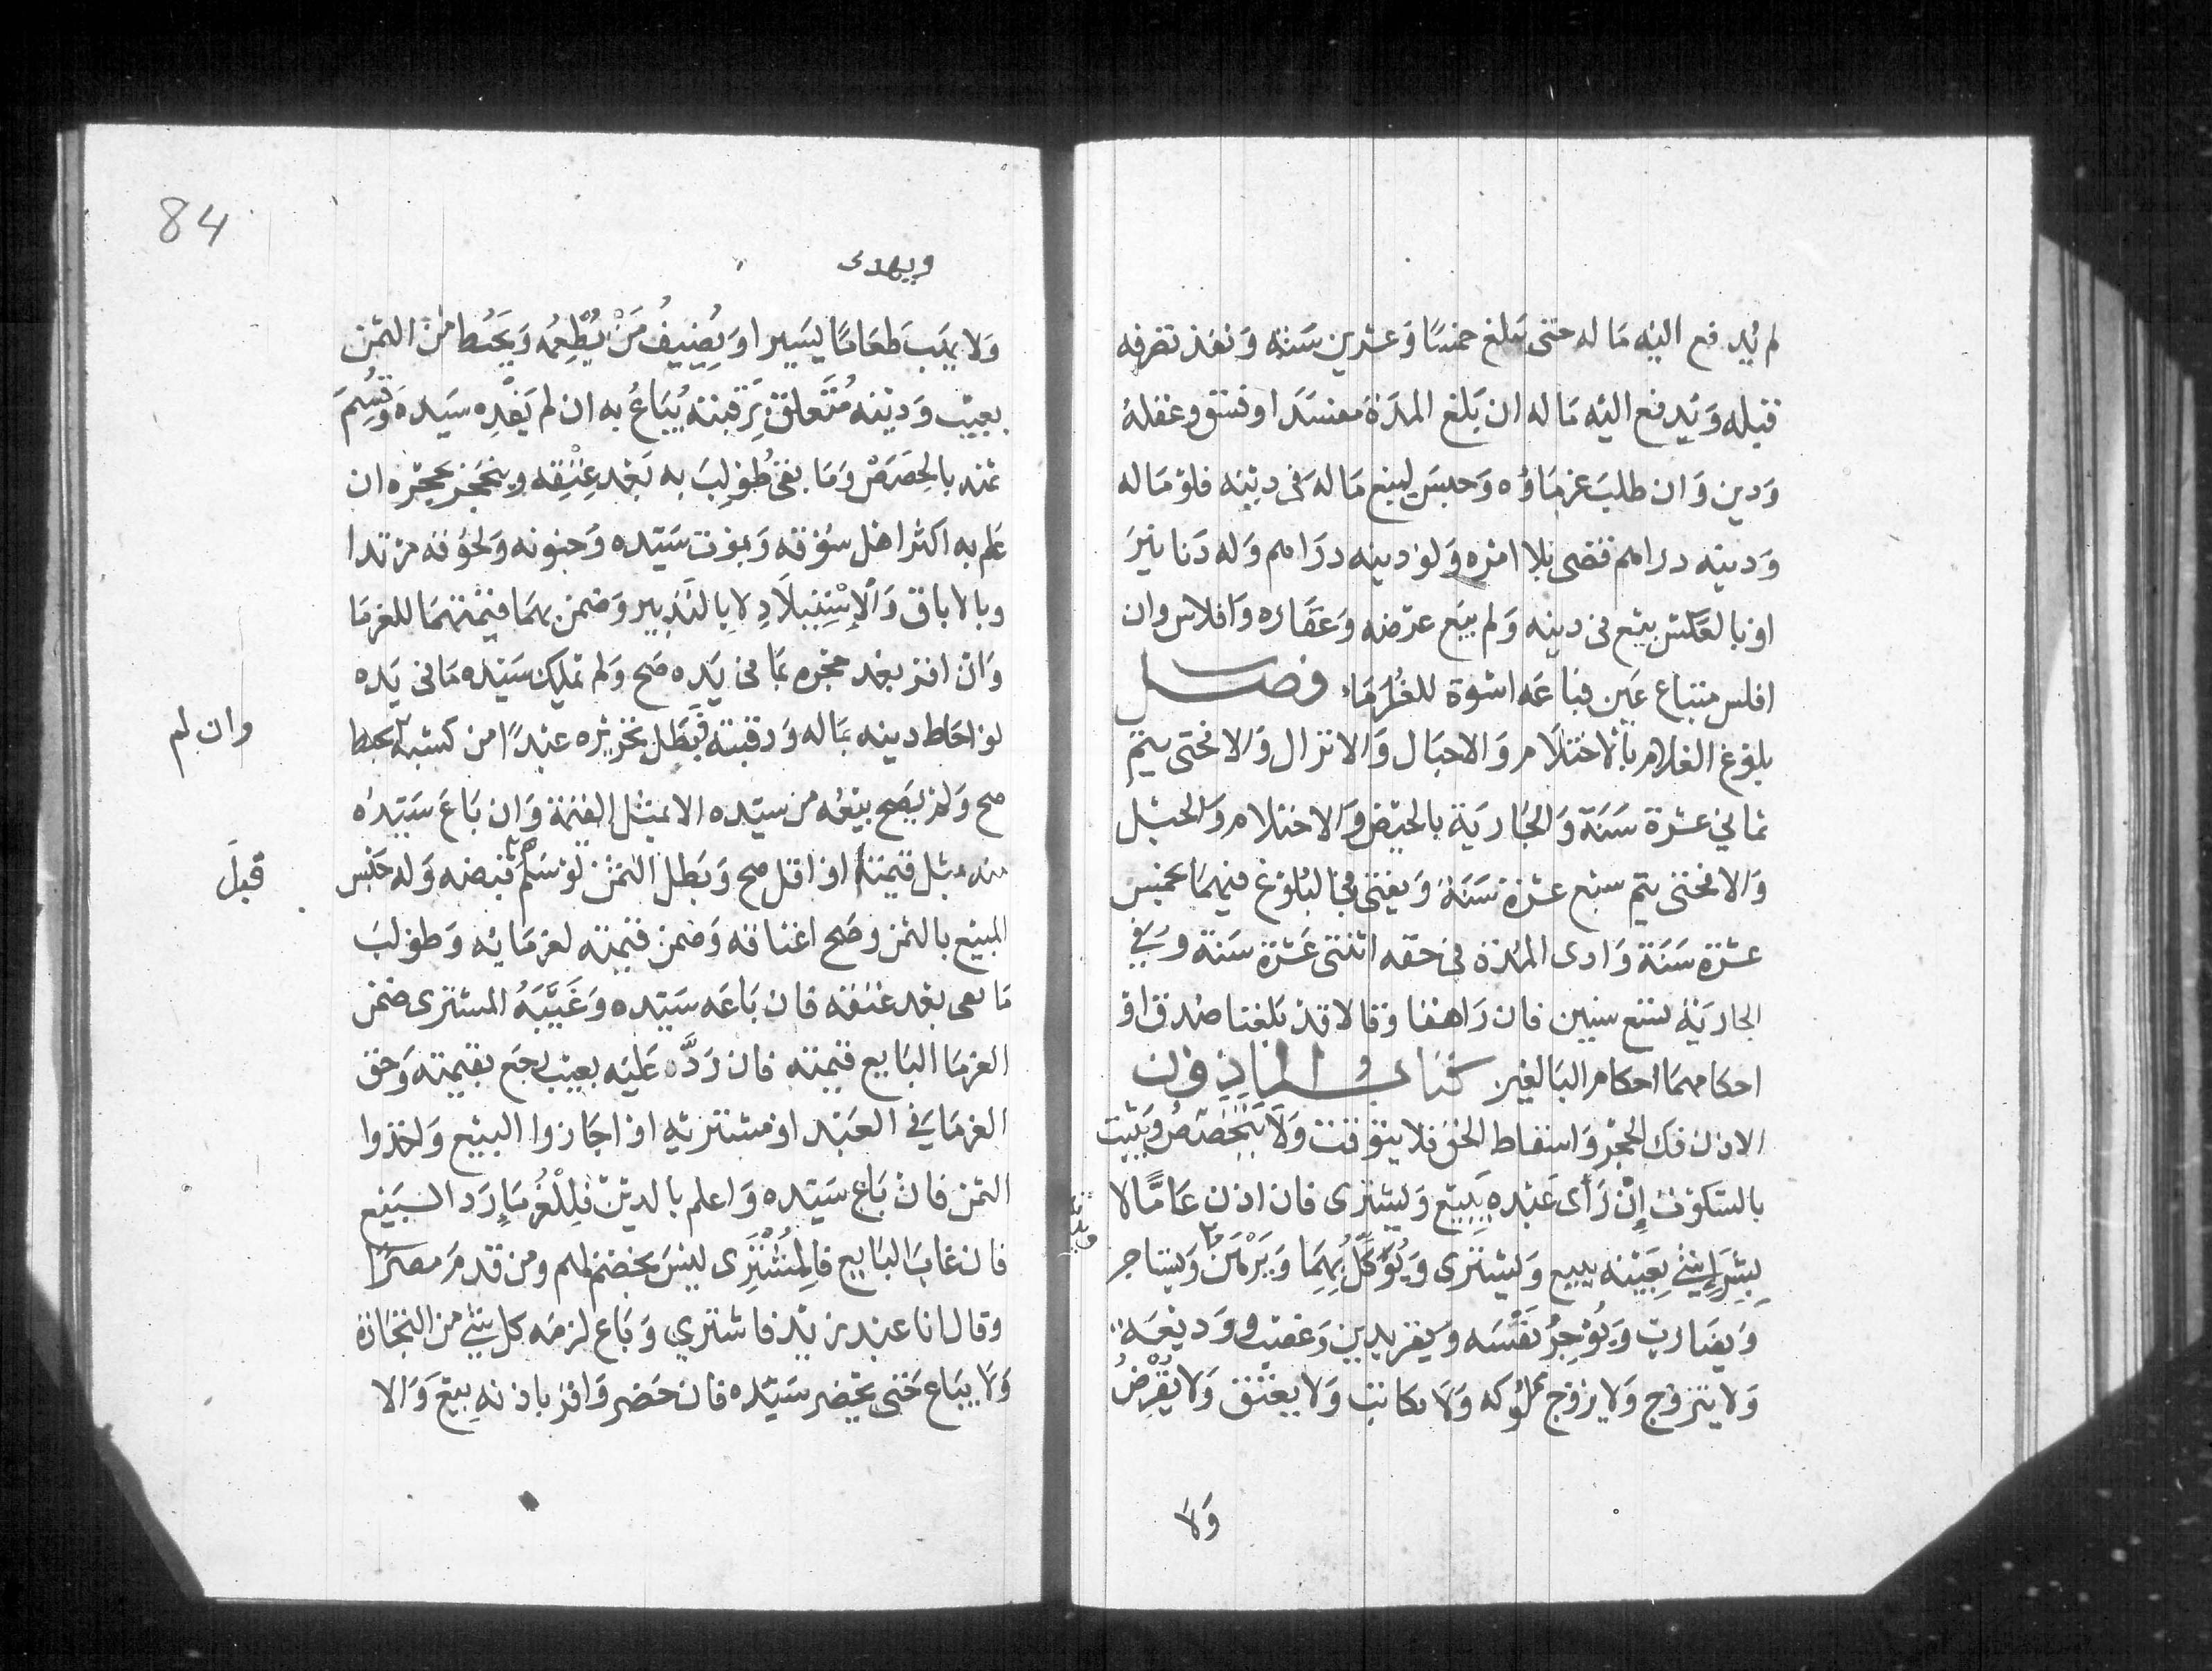 لم يدفع اليه ماله حتى يبلغ خمسا وعشرين سنة ونفذ تصرفه
قبله ويدفع اليه ماله ان بلغ المدة مفسدا وفسق وغفلة
ودين وان طلب غرماؤه وحبس ليبيع ماله فى دينه فلو ماله
ودينه دراهم قضى بلا امره ولو دينه دراهم وله دنانير
او بالعكس بيع فى دينه ولم يبع عرضه وعقاره وافلاس وان
افلس مبتاع عين فبايعه اسوة للغرماء فصل
بلوغ الغلام بالاحتلام والاحبال والانزال والا فحتى يتم
ثمانى عشرة سنة والجارية بالحيض والاحتلام والحبل
والا فحتى يتم سبع عشرة سنة ويفتى فى البلوغ فيهما بخمس
عشرة سنة وادنى المدة فى حقه اثنتى عشرة سنة وفي
الجارية تسع سنين فان راهقا وقالا قد بلغنا صدقا و
احكامهما احكام البالغين كتاب الماذون
الاذن فك الحجر واسقاط الحق فلا يتوقت ولا يتخصص ويثبت
بالسكوت إن رأى عبده يبيع ويشترى فان اذن عامًا لا
بِشراءِ شئ بعينه يبيع ويشترى ويُوَكِّل بهما ويرهن ويستاجر
ويضارب ويُؤجِرُ نفسه ويقر بدين وغصب ووديعة
ولا يتزوج ولا يزوج مملوكه ولا يكاتب ولا يعتق ولا يُقرضُ
ولا
84
ويهدى
ولا يهب طعامًا يسيرا ويُضيفُ من يُطعِمُه ويحط من الثمن
بعيب ودينه مُتعلق برقبته يُباعُ به ان لم يَفْدِه سيده وقُسِمَ
ثمنه بالحصص وما بقى طُولِبَ به بعد عِتقِه وينحجر بحجره ان
علم به اكثر اهل سوقه وبموت سيده وجنونه ولحوقه مرتدا
وبالاباق والاستيلاد لا بالتدبير وضمن بهما قيمتهما للغرما
وان اقر بعد حجره بما فى يده صح ولم يملك سيده ما فى يده
لو احاط دينه بماله ورقبته فبطل تحريره عبدًا من كسبه
يحط
وان لم
صح ولم يصح بيعه من سيده الا بمثل القيمة وان باع سيده
منه بمثل قيمته او اقل صح وبطل الثمن لو سلم
قبل
قبضه وله حبس
المبيع بالثمن وصح اعتاقه وضمن قيمته لغرمايه وطولب
ما بقى بعد عتقه فان باعه سيده وغَيَّبَهُ المشترى ضمن
الغرما البايع قيمته فان ردَّه عليه بعيب رجع بقيمته وحق
الغرما في العبد او مشتريه او اجازوا البيع واخذوا
الثمن فان باع سيده واعلم بالدين فللغُرماءِ رد البيع
فان غاب البايع فالمشترى ليس بخصم لهم ومن قدم مصرًا
وقال انا عبد زيد فاشترى وباع لزمه كل شئ من التجارة
ولا يباع حتى يحضر سيده فان حضر واقر باذنه بيع والا